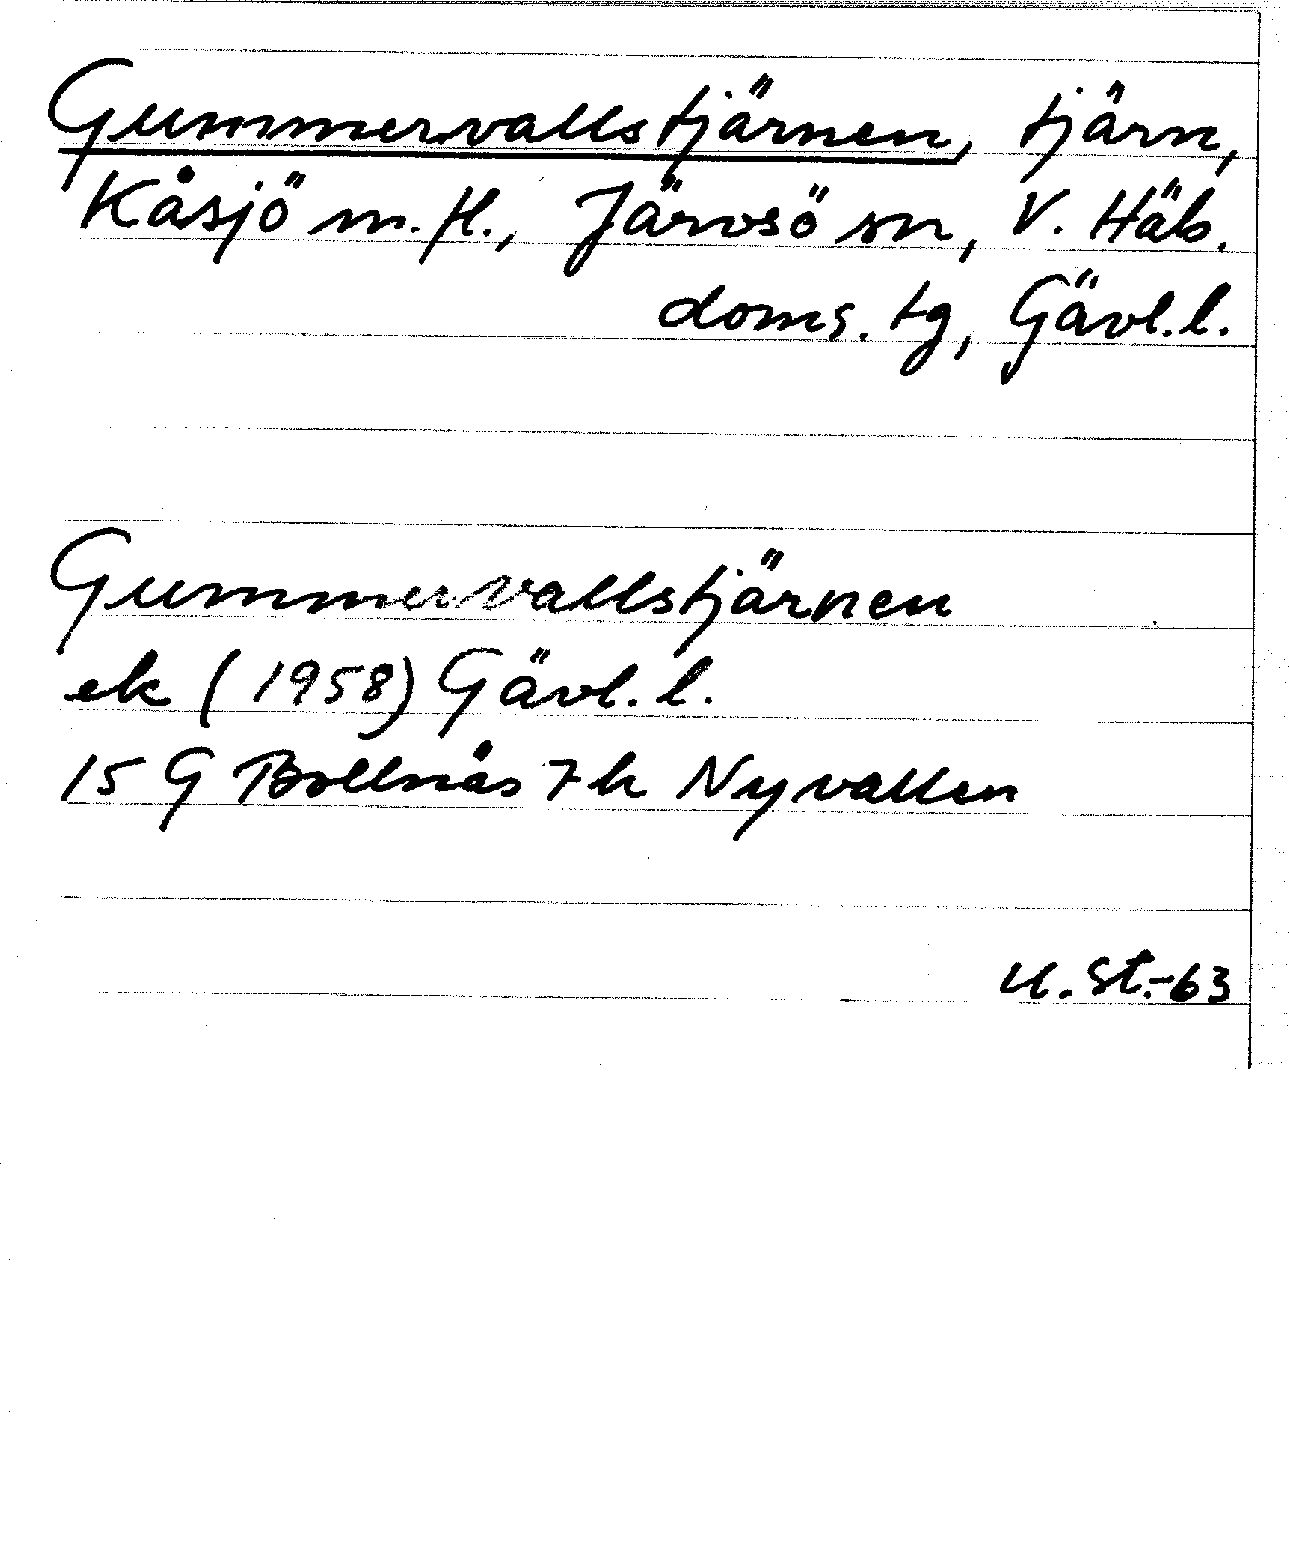 Gummervallstjärnen, tjärn,
Kåsjö m.fl., Järvsö sn, V. Häls.
doms. tg, Gävl.l.
Gummervallstjärnen
ek (1958) Gävl.l.
15 G Bollnäs 7h Nyvallen
U.St.-63